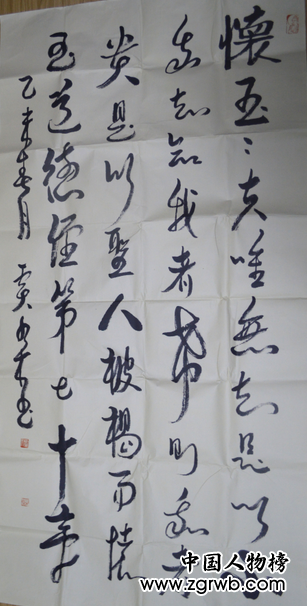 懷玉〻夫唯無知是以
我知知我者希則我者
貴是以聖人被褐而懷
玉道德經第七十章
乙未春月
中国人物榜
www.zgrwb.com